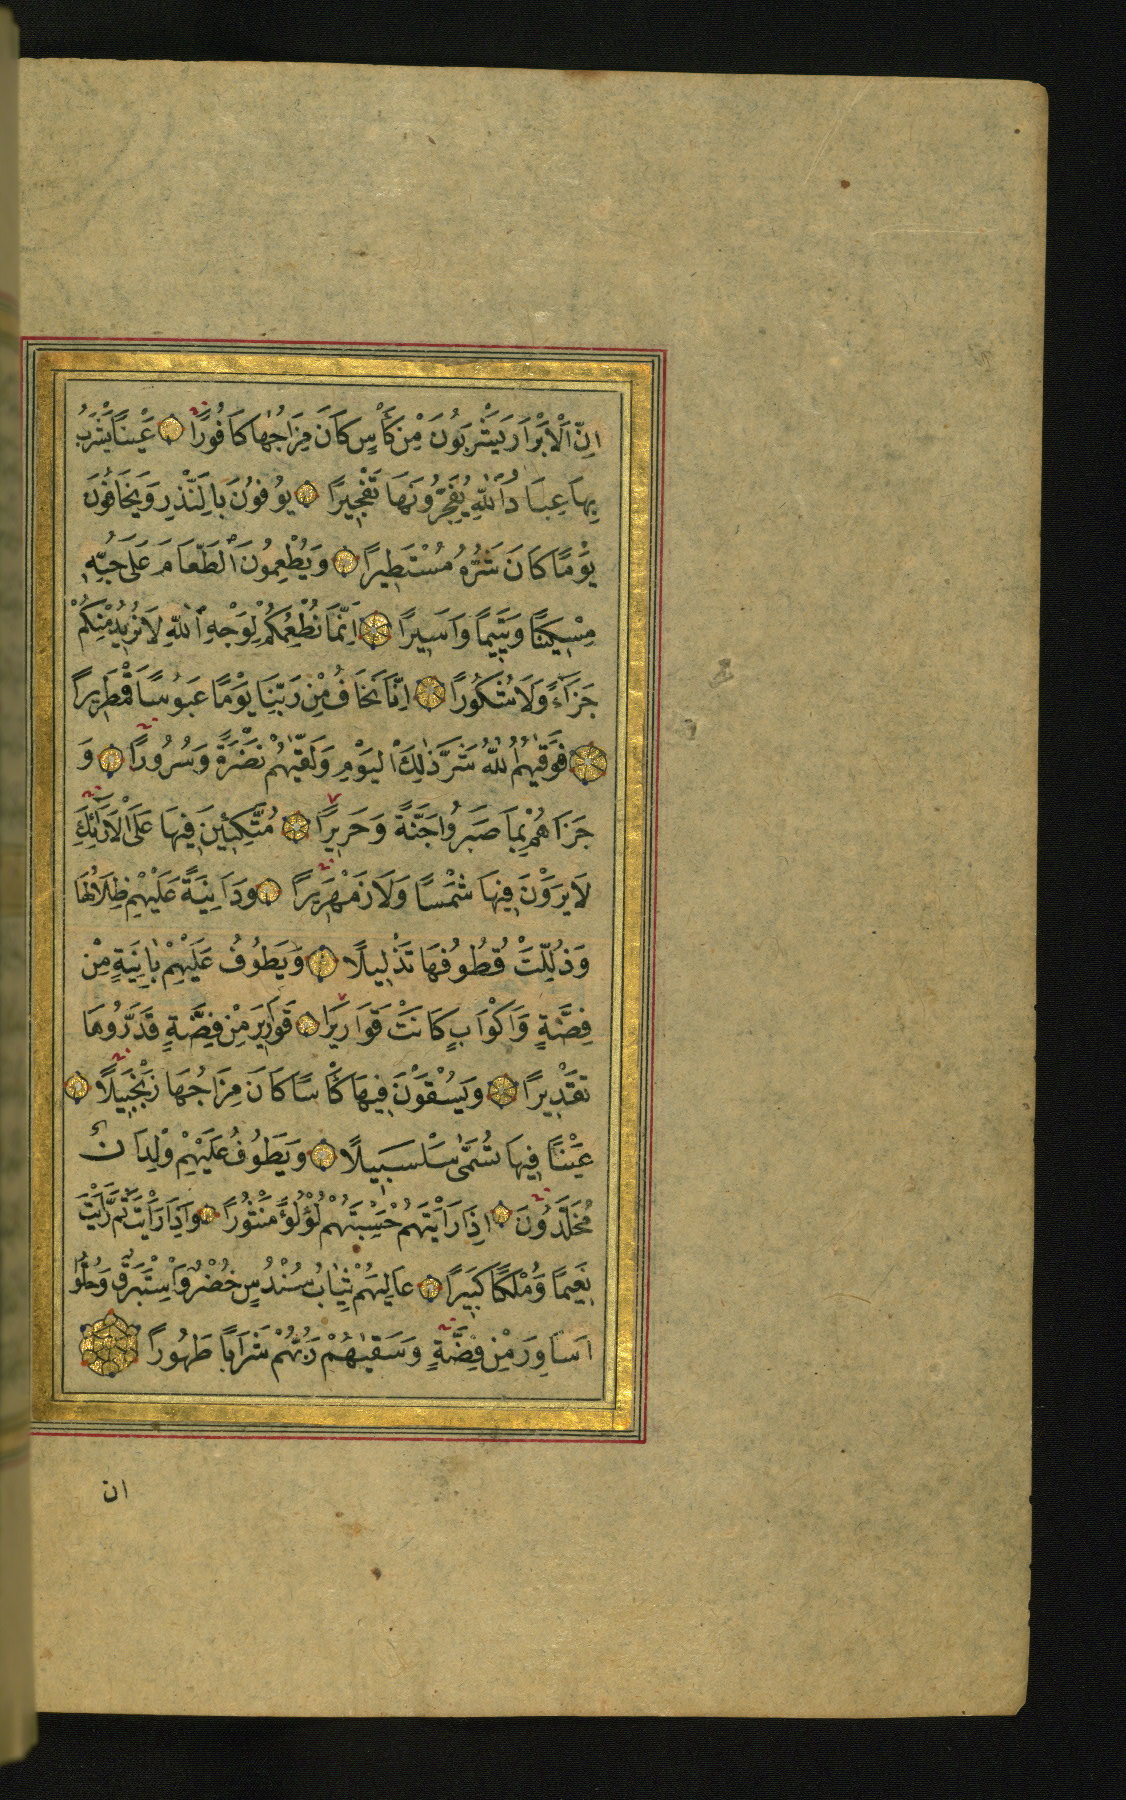 اِنَّ الْاَبْرَارَ يَشْرَبُونَ مِنْ كَأْسٍ كَانَ مِزَاجُهَا كَافُورًا عَيْنًا يَشْرَبُ
بِهَا عِبَادُ اللّٰهِ يُفَجِّرُونَهَا تَفْجِيرًا يُوفُونَ بِالنَّذْرِ وَيَخَافُونَ
يَوْمًا كَانَ شَرُّهُ مُسْتَطِيرًا وَيُطْعِمُونَ الطَّعَامَ عَلٰى حُبِّهِ
مِسْكِينًا وَيَتِيمًا وَاَسِيرًا اِنَّمَا نُطْعِمُكُمْ لِوَجْهِ اللّٰهِ لَا نُرِيدُ مِنْكُمْ
جَزَاءً وَلَا شُكُورًا اِنَّا نَخَافُ مِنْ رَبِّنَا يَوْمًا عَبُوسًا قَمْطَرِيرًا
فَوَقٰيهُمُ اللّٰهُ شَرَّ ذٰلِكَ الْيَوْمِ وَلَقّٰيهُمْ نَضْرَةً وَسُرُورًا وَ
جَزَاهُمْ بِمَا صَبَرُوا جَنَّةً وَحَرِيرًا مُتَّكِئِينَ فِيهَا عَلَى الْاَرَائِكِ
لَا يَرَوْنَ فِيهَا شَمْسًا وَلَا زَمْهَرِيرًا وَدَانِيَةً عَلَيْهِمْ ظِلَالُهَا
وَذُلِّلَتْ قُطُوفُهَا تَذْلِيلًا وَيُطَافُ عَلَيْهِمْ بِاٰنِيَةٍ مِنْ
فِضَّةٍ وَاَكْوَابٍ كَانَتْ قَوَارِيرَا قَوَارِيرَ مِنْ فِضَّةٍ قَدَّرُوهَا
تَقْدِيرًا وَيُسْقَوْنَ فِيهَا كَأْسًا كَانَ مِزَاجُهَا زَنْجَبِيلًا
عَيْنًا فِيهَا تُسَمّٰى سَلْسَبِيلًا وَيَطُوفُ عَلَيْهِمْ وِلْدَانٌ
مُخَلَّدُونَ اِذَا رَاَيْتَهُمْ حَسِبْتَهُمْ لُؤْلُؤًا مَنْثُورًا وَاِذَا رَاَيْتَ ثَمَّ رَاَيْتَ
نَعِيمًا وَمُلْكًا كَبِيرًا عَالِيَهُمْ ثِيَابُ سُنْدُسٍ خُضْرٌ وَاِسْتَبْرَقٌ وَحُلُّوا
اَسَاوِرَ مِنْ فِضَّةٍ وَسَقٰيهُمْ رَبُّهُمْ شَرَابًا طَهُورًا
ان